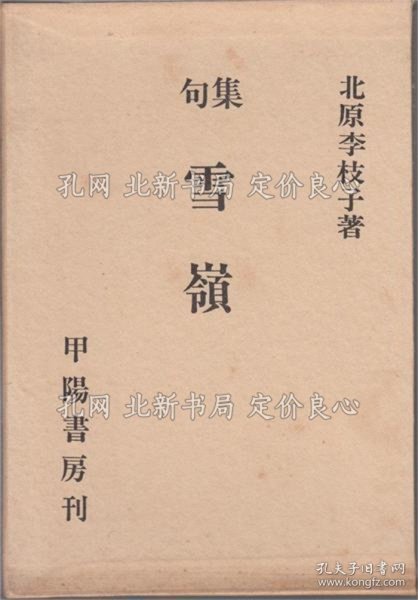 北原李枝子著
句集
雪嶺
甲陽書房刊
孔网 北新书局 定价良心
孔网 北新书局 定价良心
孔网 北新书局 定价良心
孔夫子旧书网
www.kongfz.com